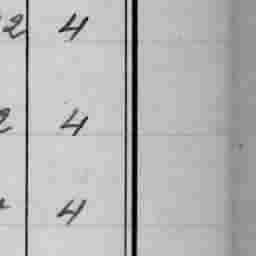 2 4
2 4
4